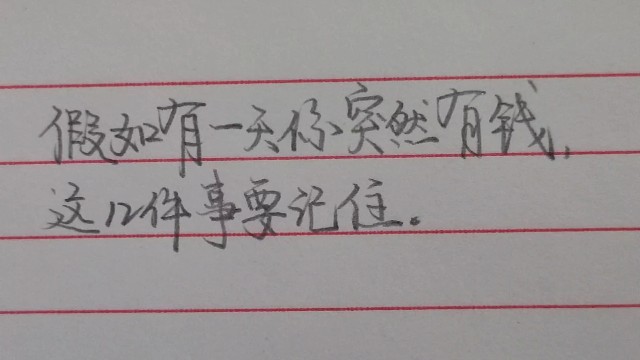 假如有一天你突然有钱,
这12件事要记住。